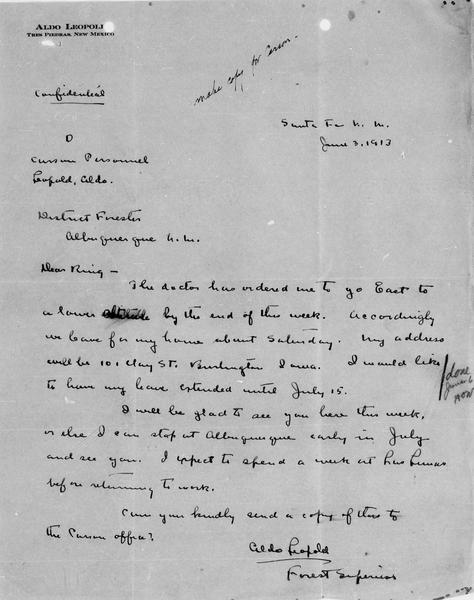 ALDO LEOPOLD
TRES PIEDRAS, NEW MEXICO
make copy for Carson.
Confidential
Santa Fe N. M.
June 3, 1913
O
Carson Personnel
Leopold, Aldo.
District Forester
Albuquerque N. M.
Dear Ring —
The doctor has ordered me to go East to
a lower altitude by the end of this week. Accordingly
we leave for my home about Saturday. My address
will be 101 Clay St. Burlington Iowa. I would like
to have my leave extended until July 15.
done
June 6
I will be glad to see you here this week,
or else I can stop at Albuquerque early in July
and see you. I expect to spend a week at Los Lunas
before returning to work.
Can you kindly send a copy of this to
the Carson office?
Aldo Leopold
Forest Supervisor